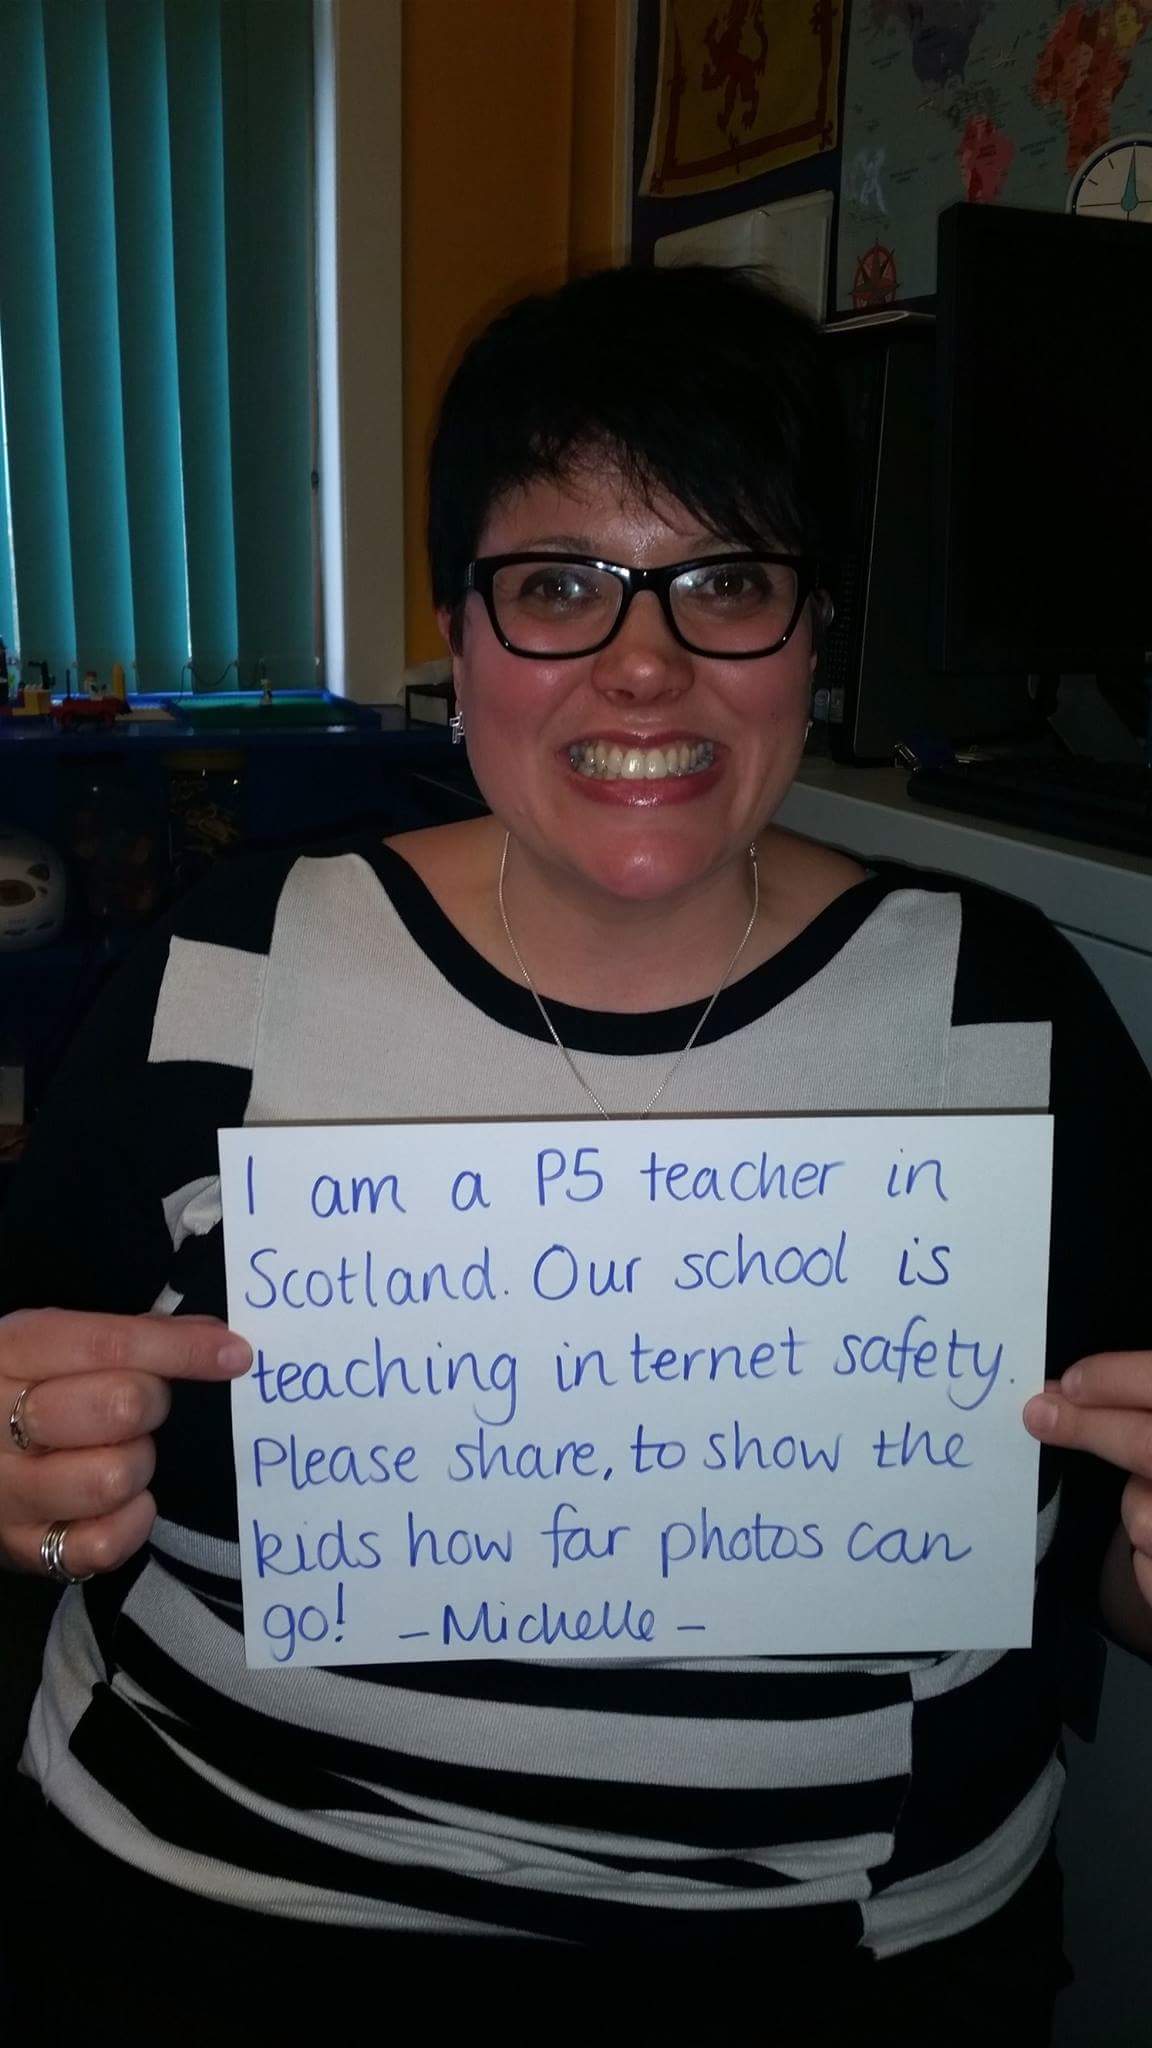 I am a P5 teacher in
Scotland. Our school is
teaching internet safety.
Please share, to show the
kids how far photos can
go! - Michelle -